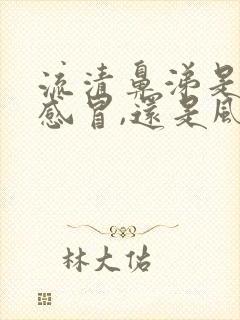 流清鼻涕是
感冒,還是風
林大佑